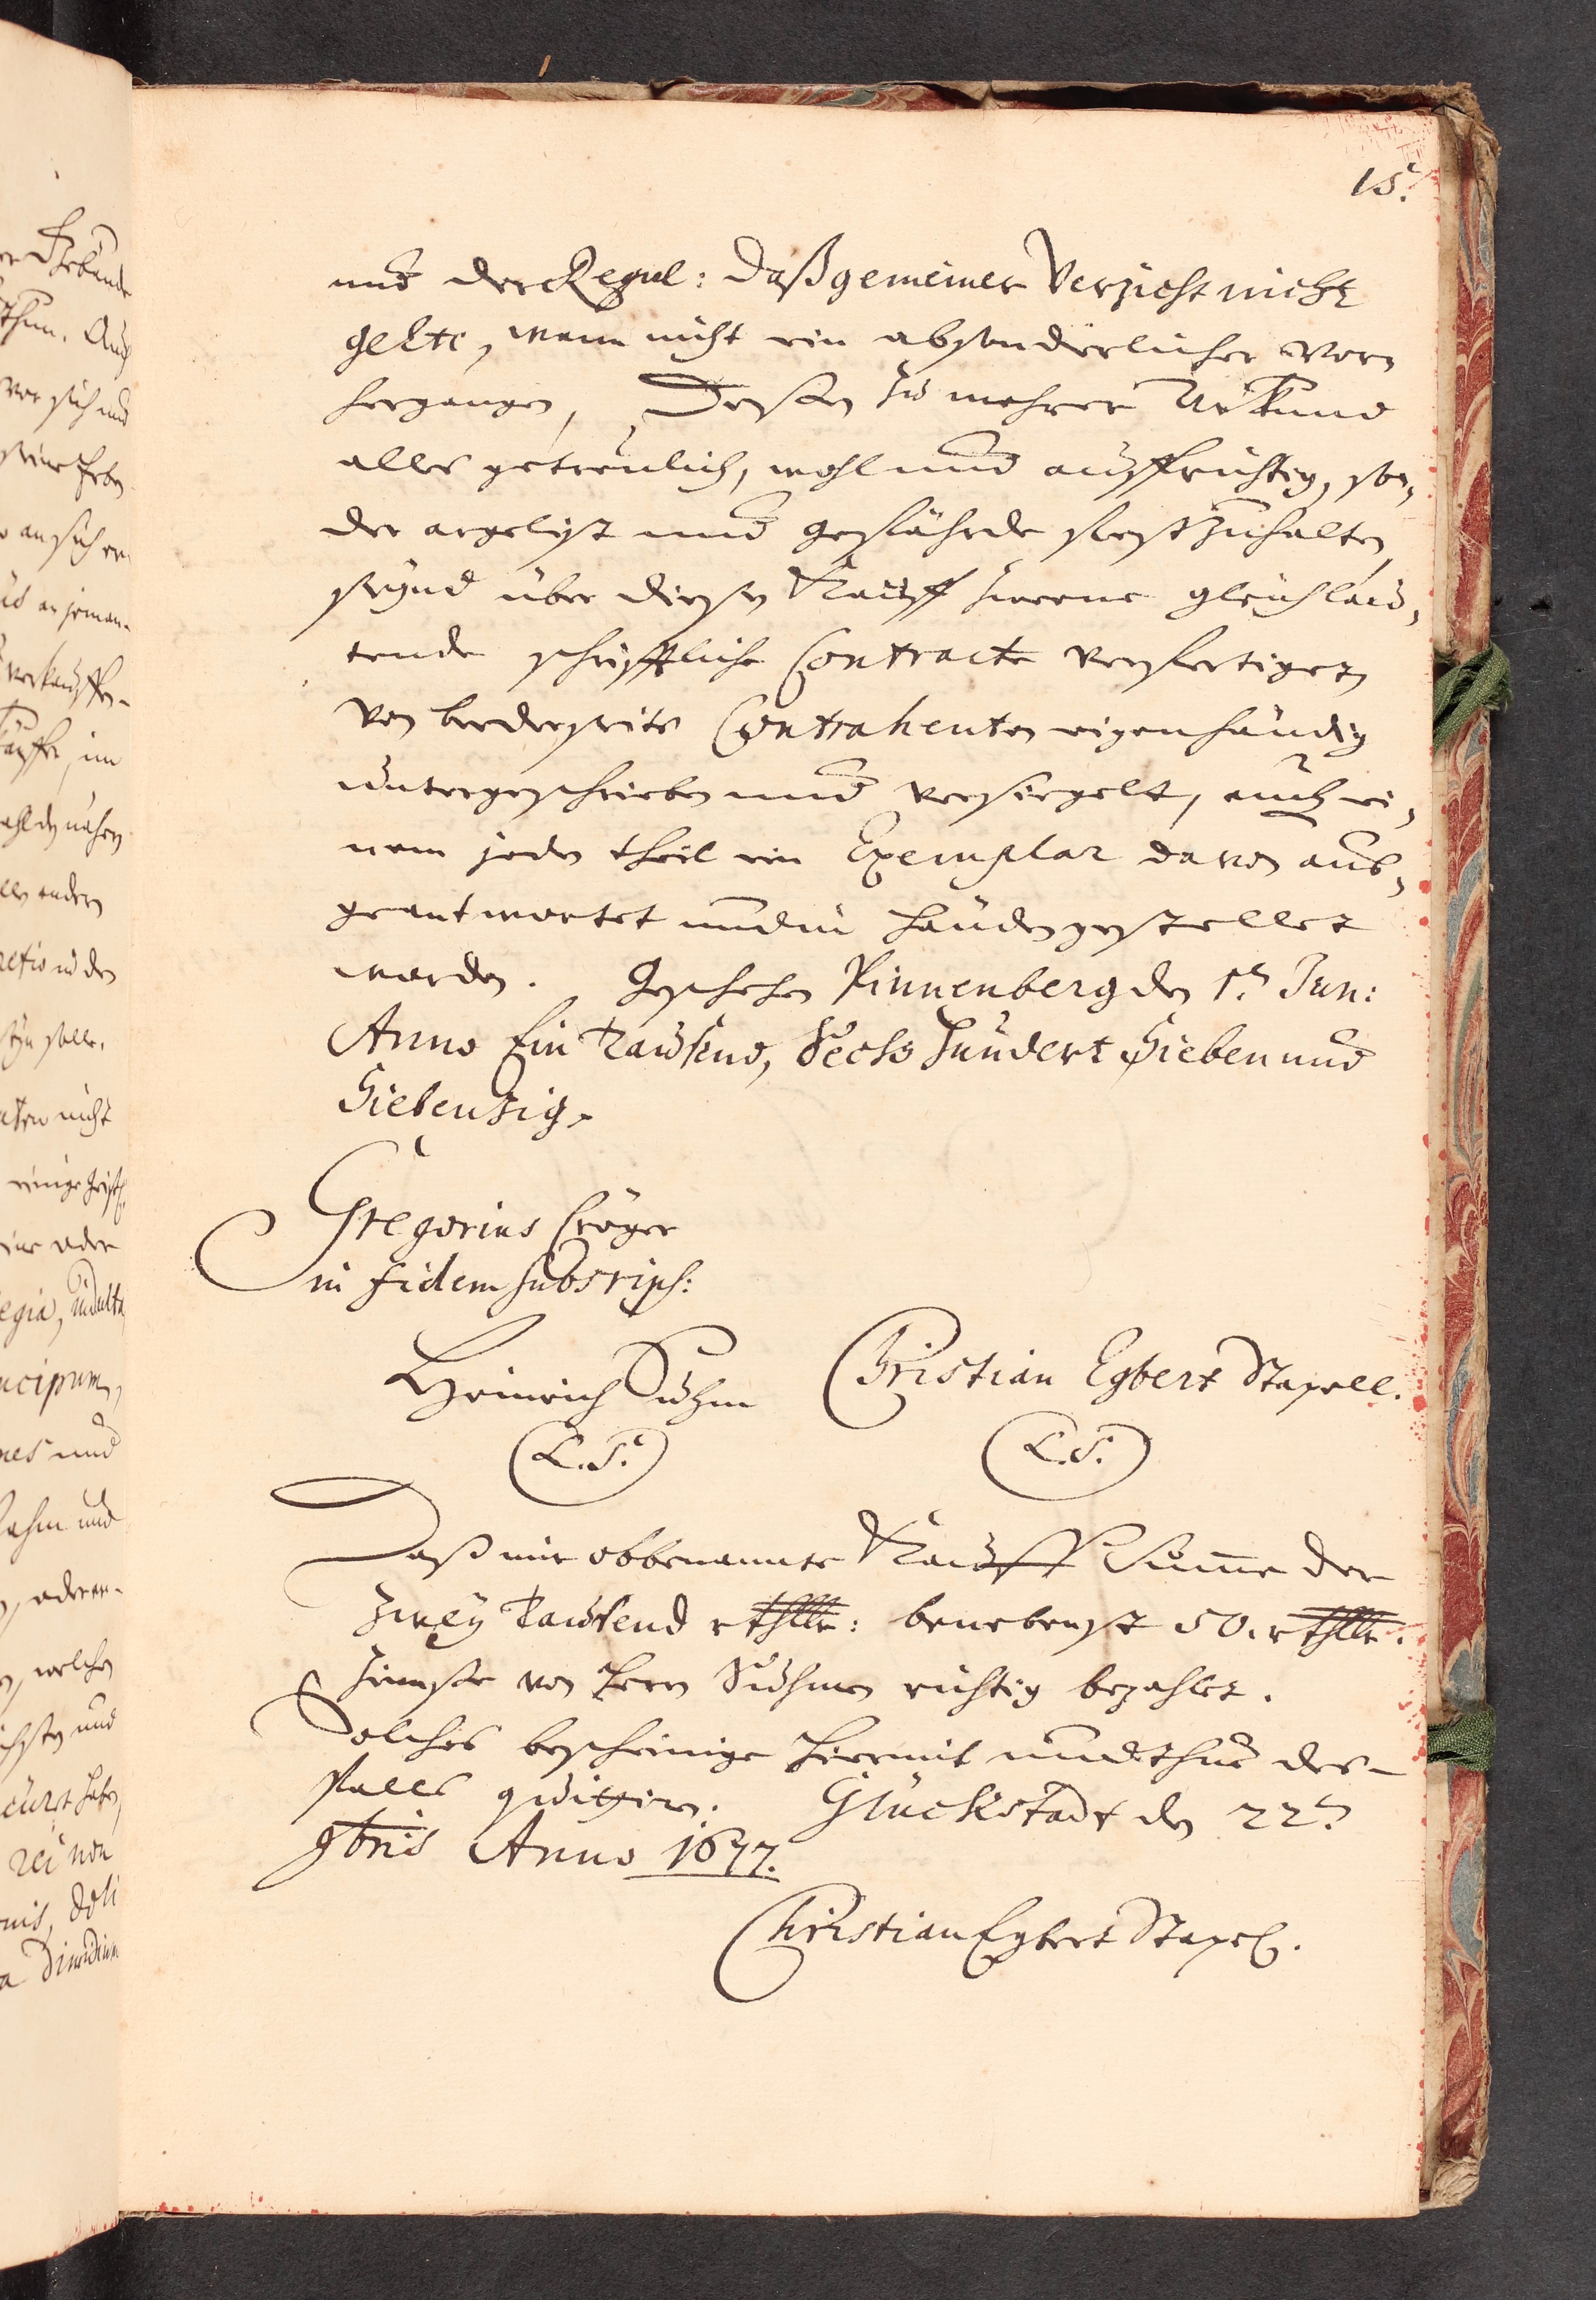 15.
und der Regul: daß gemeiner Verzicht nicht
gelte, wann nicht ein absonderlicher vorn
hergangen, Dessen zu mehrer Uhrkund
alles getreulich, wohl und auffrichtig, son,
der argelist und gefährde fest zu halten
seynd über diesen Kauff zweene gleichlau,
tende schrifftliche Contracte verfertiget,
von beederseits Contrahenten eigenhändig
unterschrieben und versiegelt, auch ei,
nem jeden theil ein Exemplar davon aus,
geantwortet und in händen gestellet
worden. Geschehen Pinnenberg den 1.ten Jun:
Anno Ein tausend, Sechs hundert Sieben und
Siebenzig.
Gregorius Cröger
in fidem subscrips:
Heinrich Suhm Christian Egbert Stapell.
L.S. L.S.
Daß mir obbenannte Kauff Summe der
zwey tausend rthlr: benebenst 50. rthlr.
Zinnse von Herrn Suhmen richtig bezahlet.
Solches bescheinige hiermit und thue des-
falls quitiren. Glückstadt den 22.ten
9bris Anno 1677.
Christian Egbert Stapel.
er Gebäude
thun. Auch
vor sich und
seine Erben
an sich
verkauffen-
nicht
oder
egia, indulta
ncipum,
nes und
nahm und
oder
welchen
und
rei non
nis, doli